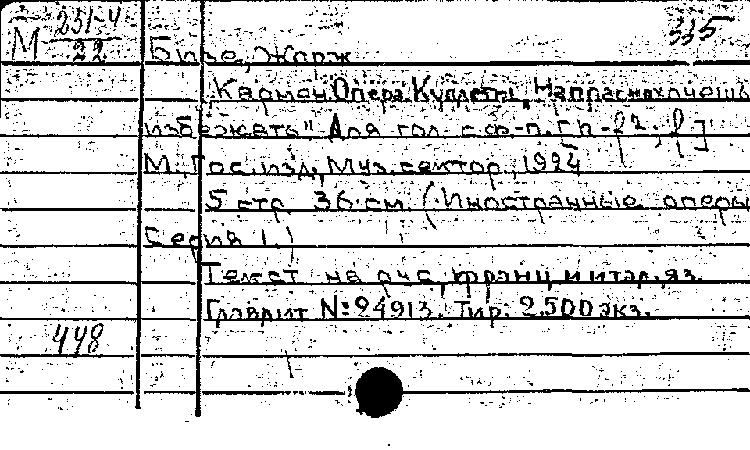 М 251-4
22
335
Бизе, Жорж
Кармен. Опера. Куплеты „Напрасно хочешь
избежать" Для гол. с ф-п. [n-22; р]
М., Гос. изд., Муз. сектор, 1924
5 стр. 36 см. (Иностранные оперы
Серия 1.)
Текст на рус., франц. и итал. яз.
Главлит № 24913. Тир. 2.500 экз.
448